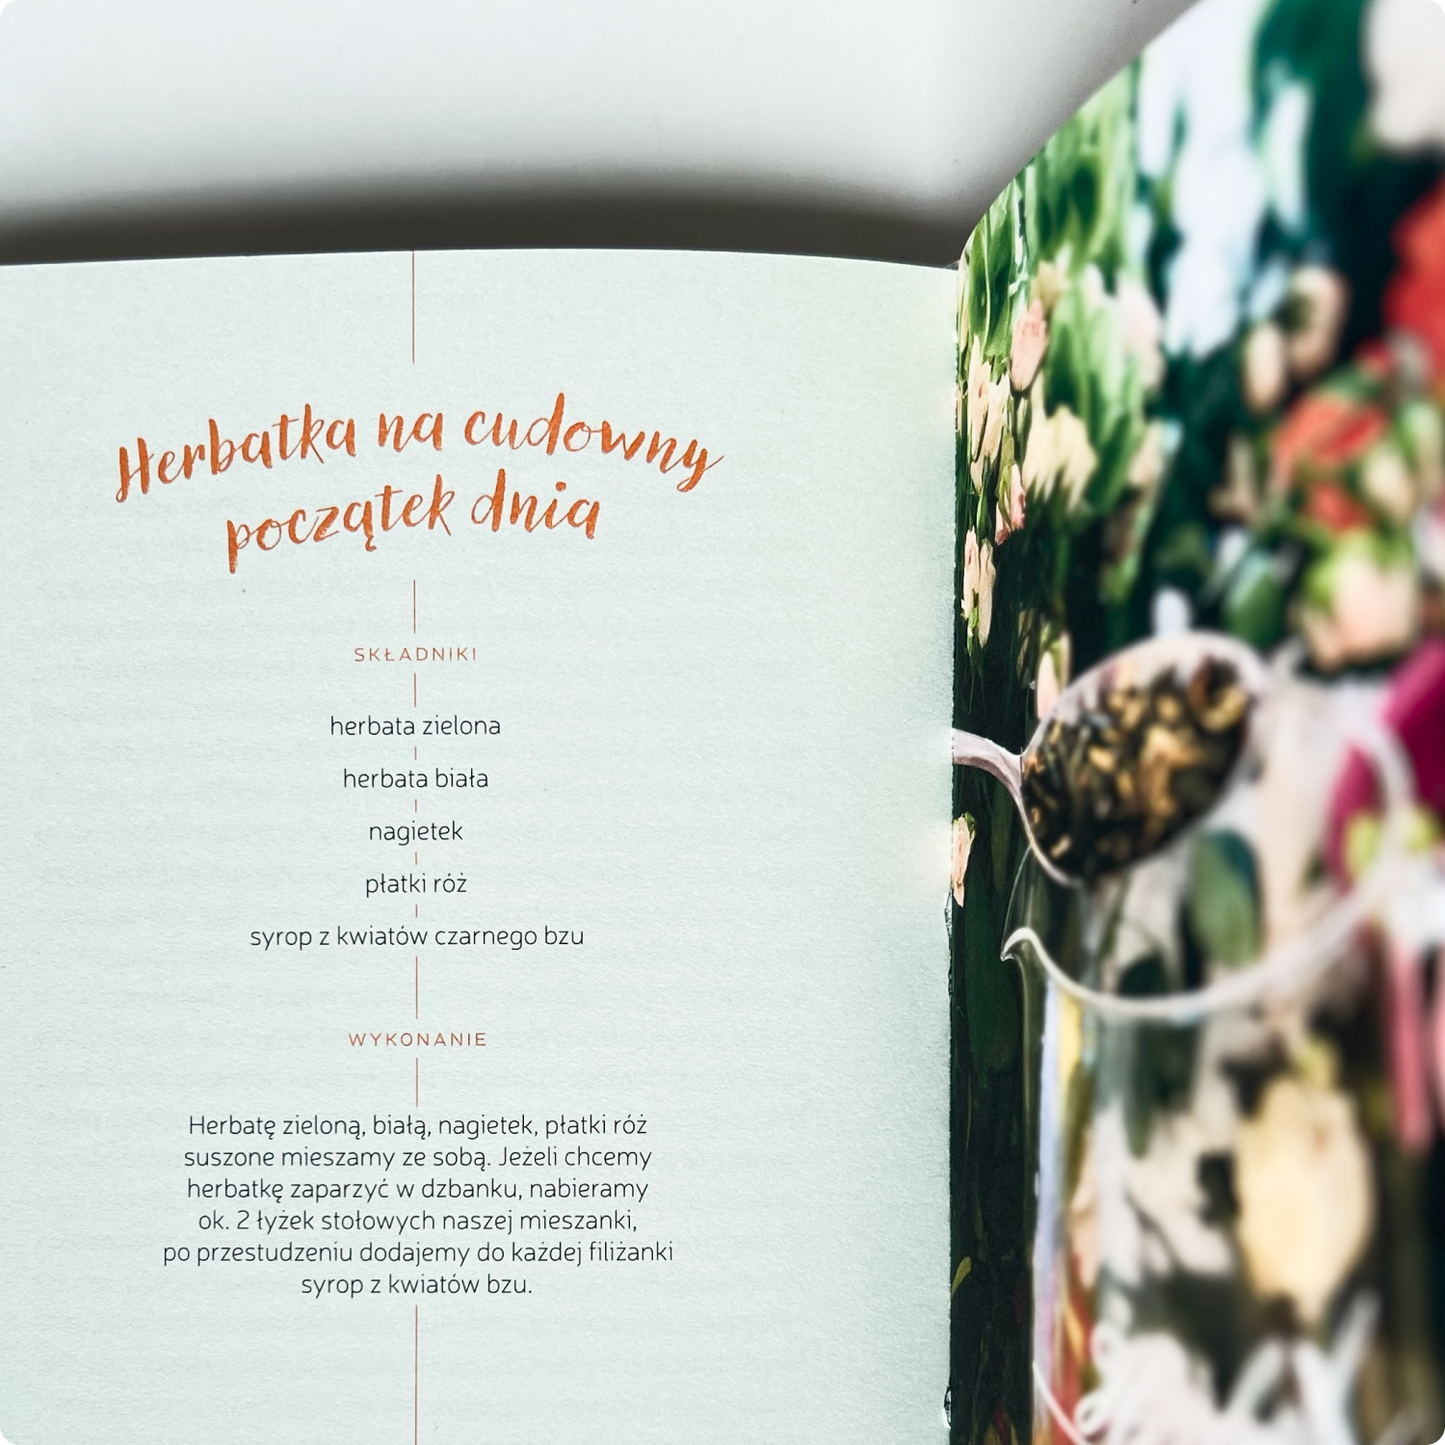 Herbatka na cudowny
początek dnia
SKŁADNIKI
herbata zielona
herbata biała
nagietek
płatki róż
syrop z kwiatów czarnego bzu
WYKONANIE
Herbatę zieloną, białą, nagietek, płatki róż
suszone mieszamy ze sobą. Jeżeli chcemy
herbatkę zaparzyć w dzbanku, nabieramy
ok. 2 łyżek stołowych naszej mieszanki,
po przestudzeniu dodajemy do każdej filiżanki
syrop z kwiatów bzu.